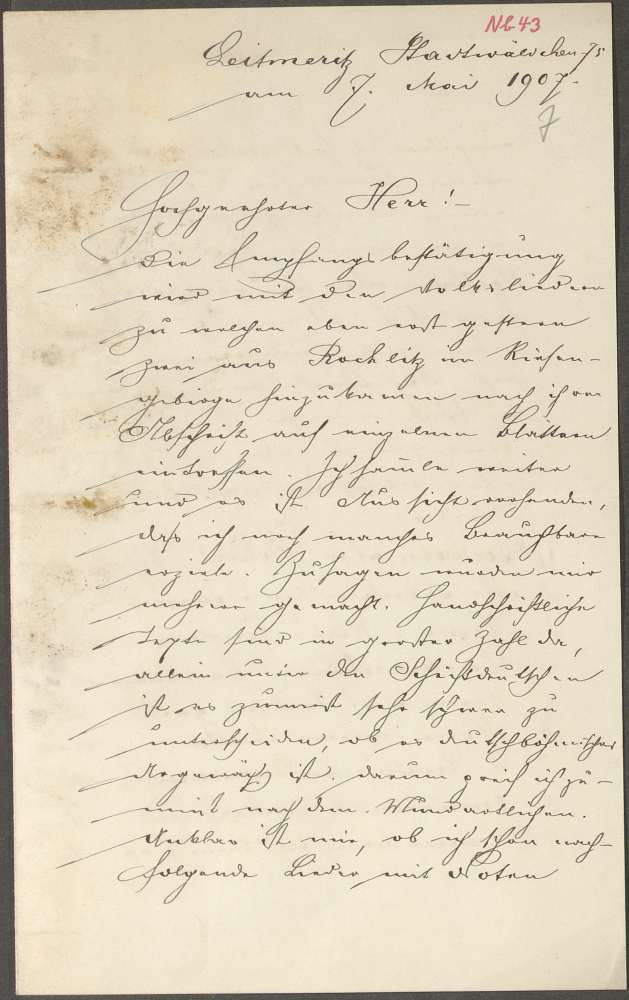 Nb 43
Leitmeritz Stadtwäldchen 75
am 7. Mai 1907.
7
Hochgeehrter Herr!-
Die Empfangsbestätigung
wird mit den Volksliedern
zu welchen eben erst gestern
zwei aus Rochlitz im Riesen-
gebirge hinzukamen nach ihrer
Abschrift auf einzelnen Blättern
eintreffen. Ich samle weiter
und es ist Aussicht vorhanden,
daß ich noch manches Brauchbare
erziele. Zusagen wurden mir
mehrere gemacht. Handschriftliche
Texte sind in großer Zahl da,
allein unter den Schriftdeutschen
ist es zumeist sehr schwer zu
unterscheiden, ob es deutschböhmisches
ist. darum greif ich zu-
meist nach dem Mundartlichen.
Unklar ist mir, ob ich schon nach-
folgende Lieder mit Noten